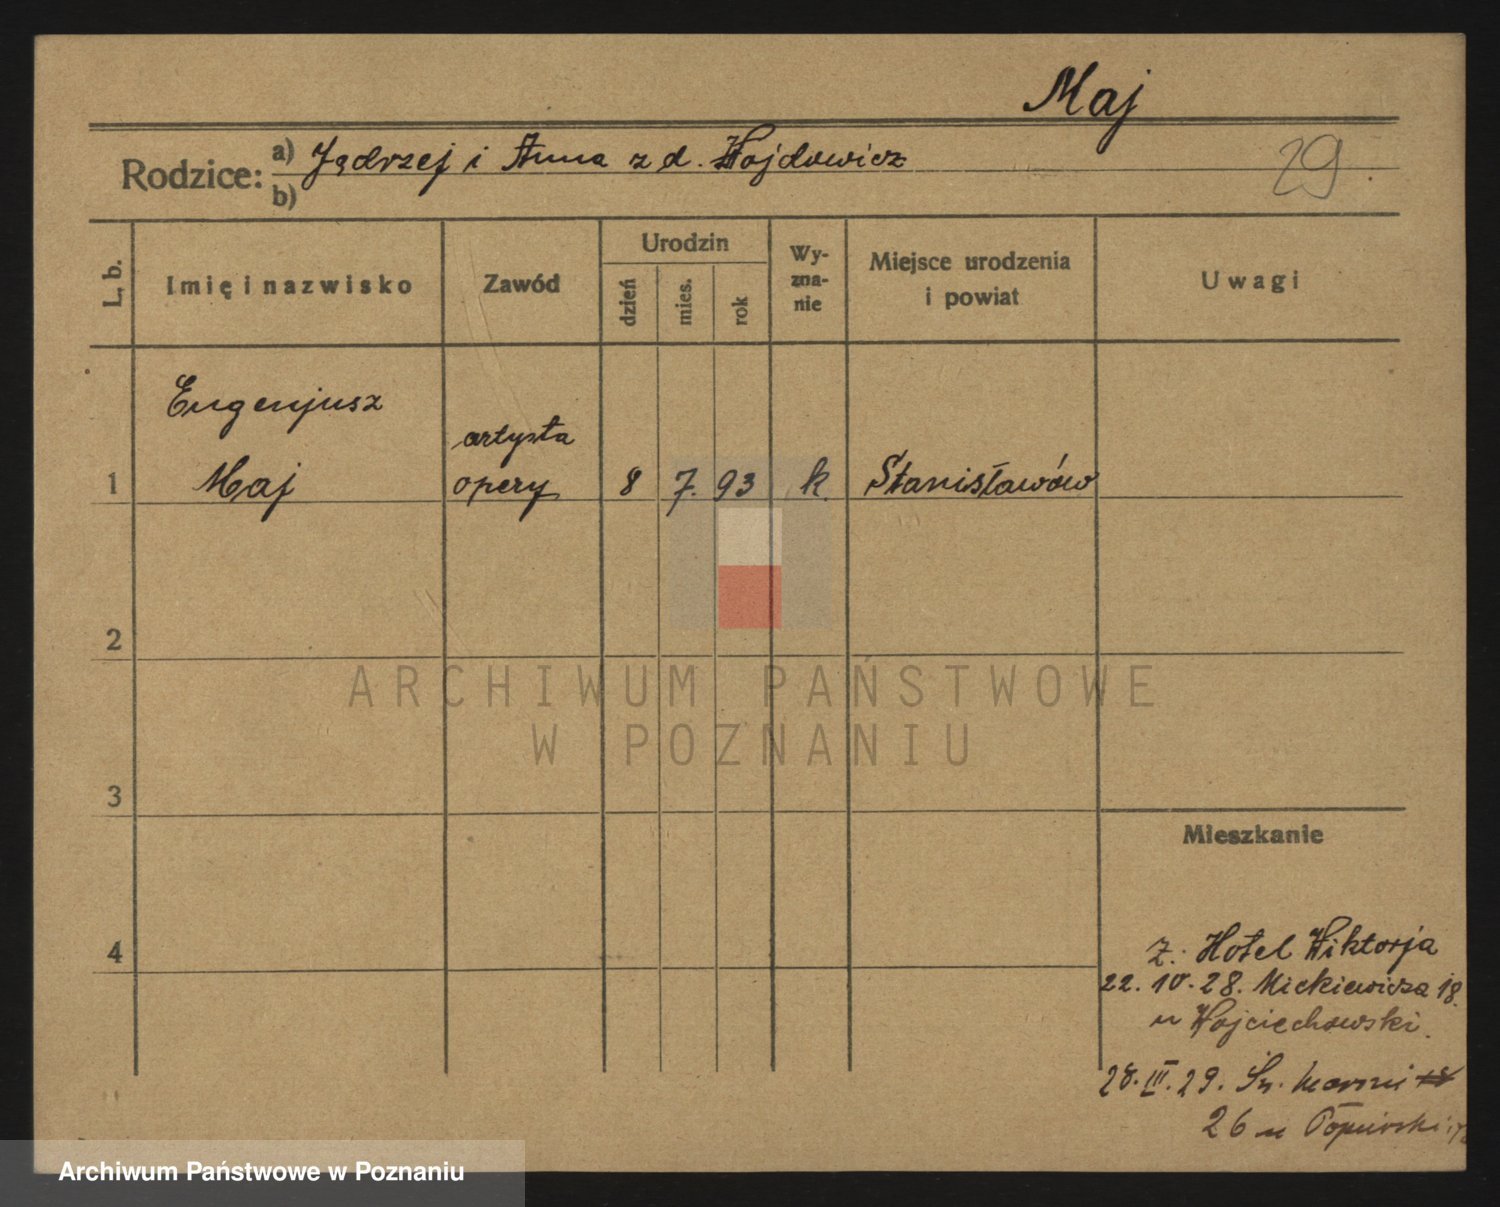 Maj
Rodzice: a) Jędrzej i Anna z d. Wojdowicz
b)
29
L. b.
Imię i nazwisko
Zawód
Urodzin
dzień
mies.
rok
Wy-
zna-
nie
Miejsce urodzenia
i powiat
Uwagi
Eugenjusz
artysta
1 Maj opery 8 7. 93 k. Stanisławów
2
ARCHIWUM PAŃSTWOWE
W POZNANIU
3
Mieszkanie
4
z. Hotel Wiktorja
22. 10. 28. Mickiewicza 18.
u Wojciechowski.
28. III. 29. Św. Marcin 18
26 u
Archiwum Państwowe w Poznaniu